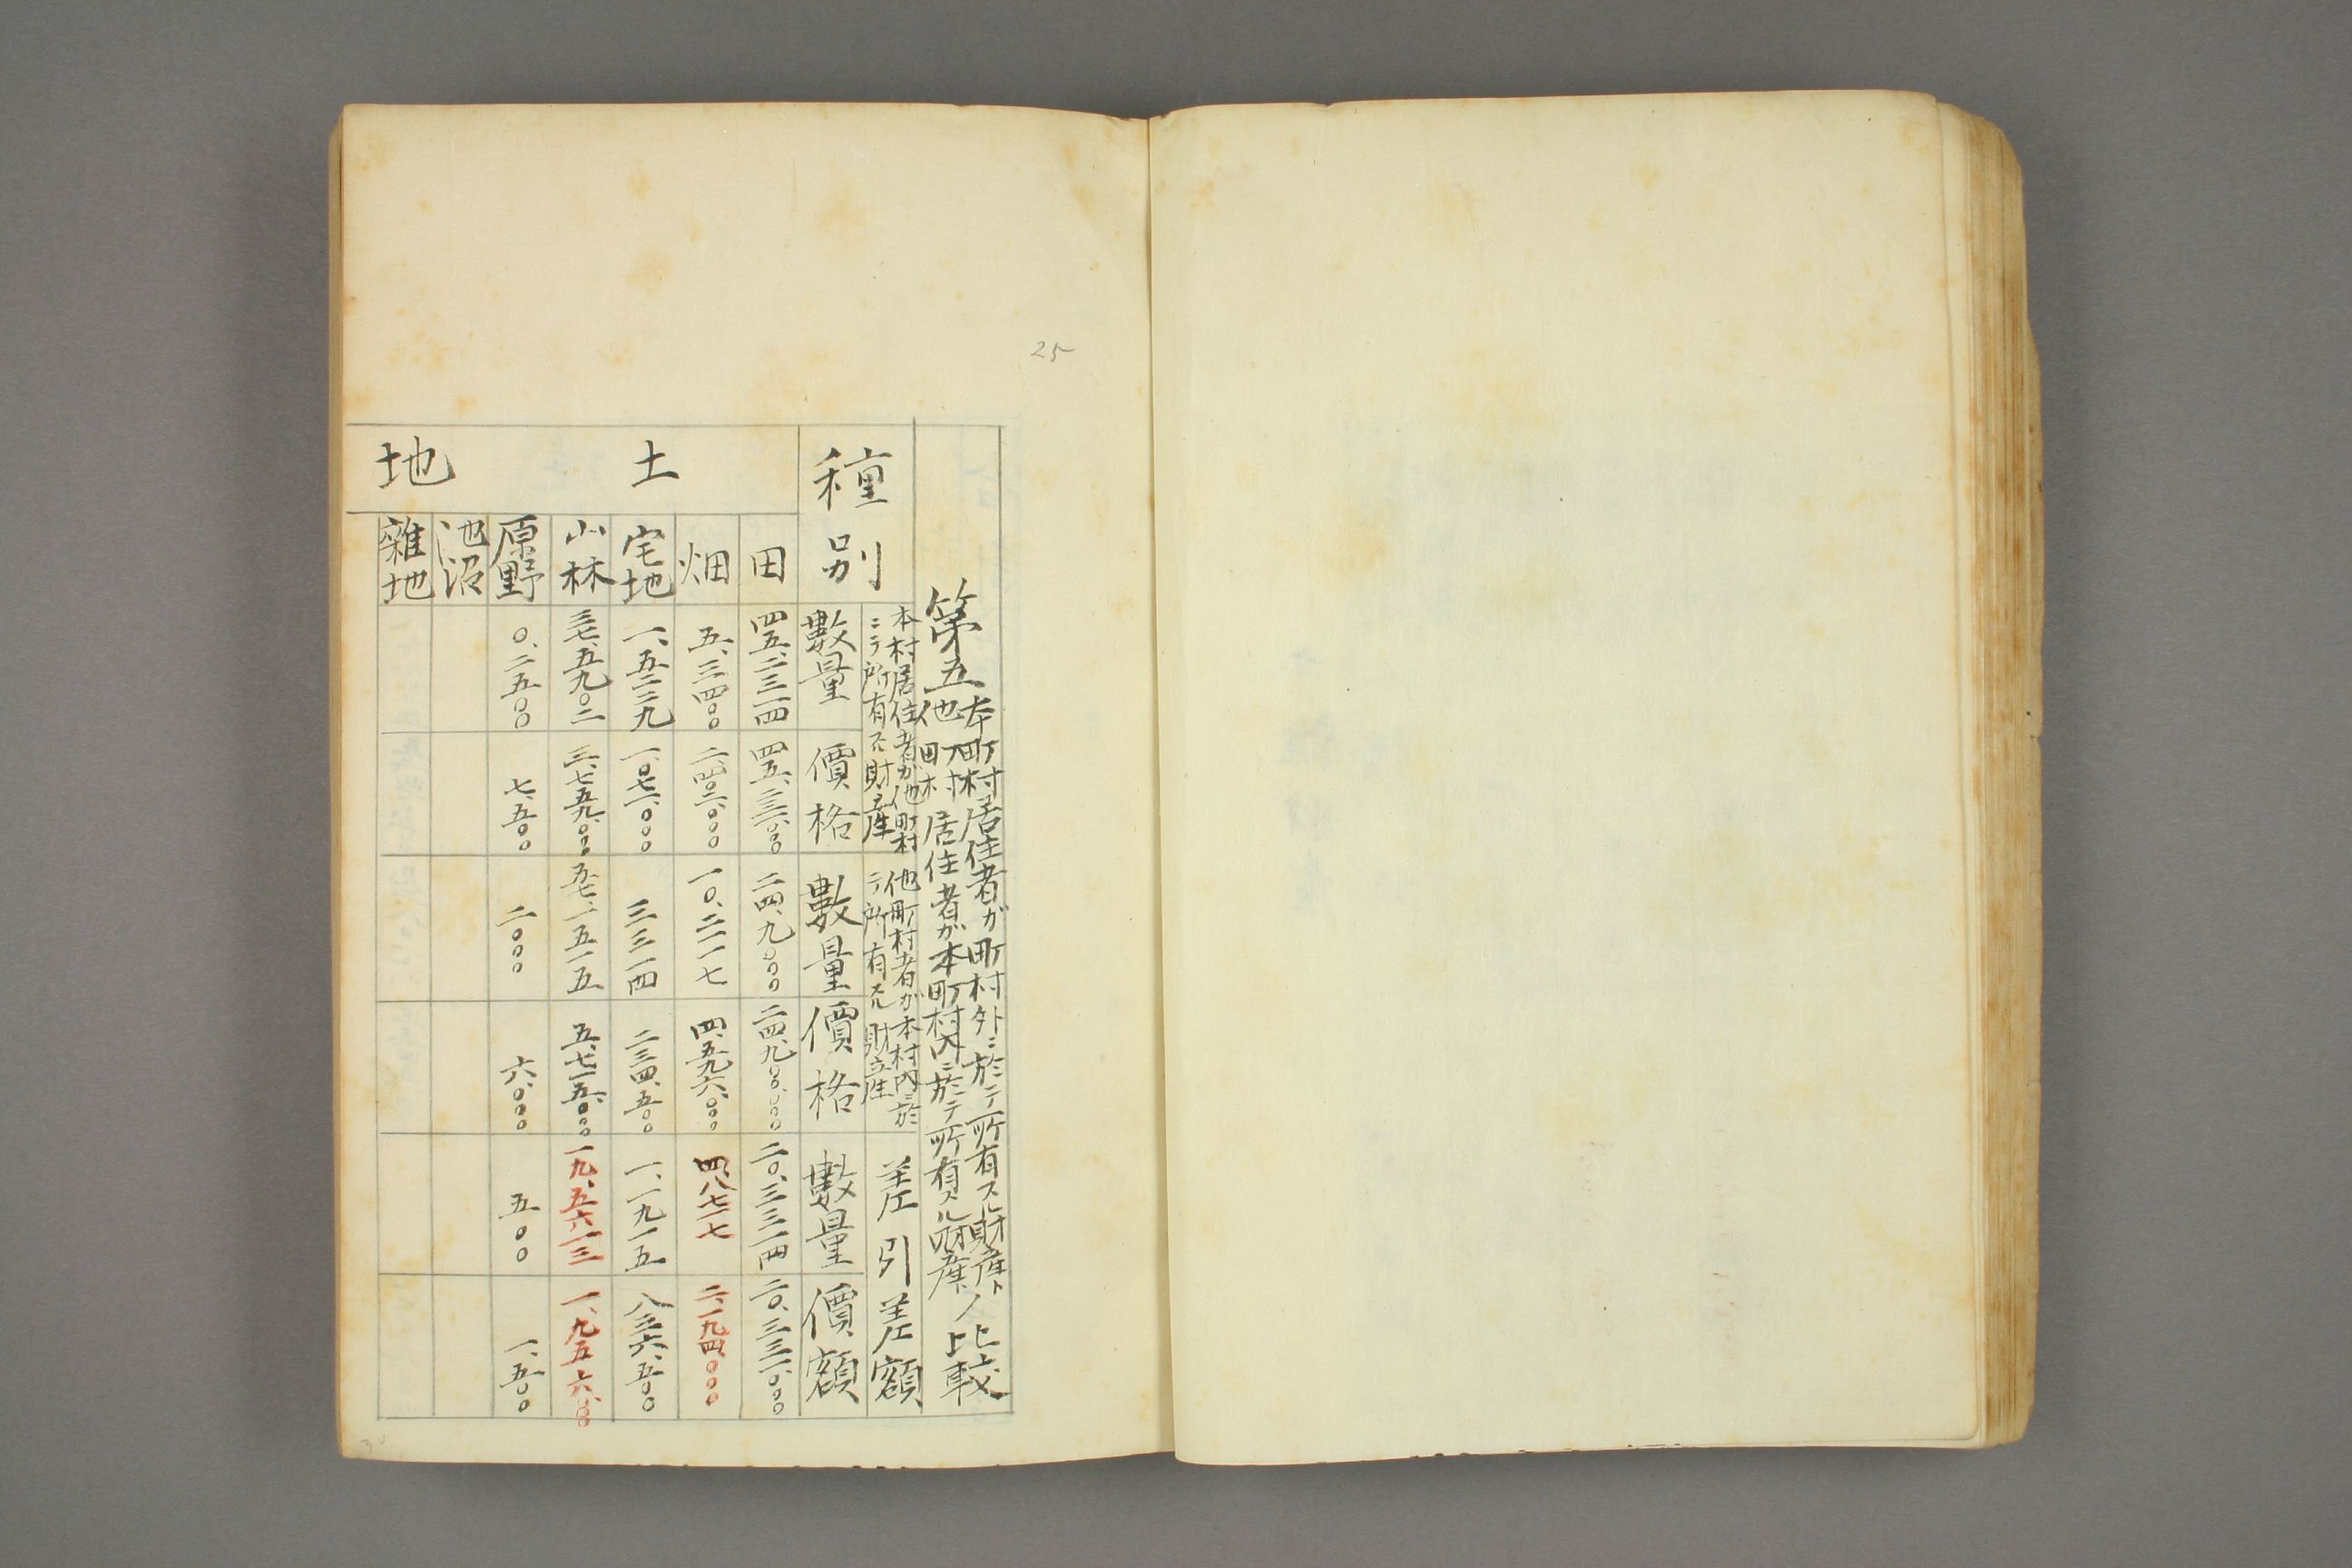 25
第五 本町村居住者ガ町村外ニ於テ所有スル財産ト
他町村居住者ガ本町村内ニ於テ所有スル財産トノ比較
種別
本村居住者ガ他町村
ニテ所有スル財産
他町村者ガ本村内ニ於
テ所有スル財産
差引差額
數量 價格 數量 價格 數量 價額
土地
田 四五、二三一四 四五、二三一、〇〇〇 二四、九〇〇〇 二四、九〇〇、〇〇〇 二〇、三三一四 二〇、三三一、〇〇〇
畑 五、三四〇〇 二、四〇二、〇〇〇 一〇、二一一七 四、五九六、〇〇〇 四、八七一七 二、一九四〇〇〇
宅地 一、五二二九 一、〇七一、〇〇〇 三三一四 二三四、五〇〇 一、一九一五 八三六、五〇〇
山林 三七、五九〇二 三、七五九、〇〇〇 五七、一五一五 五、七一五、〇〇〇 一九、五六一三 一、九五六、〇〇〇
原野 〇、二五〇〇 七、五〇〇 二〇〇〇 六、〇〇〇 五〇〇 一、五〇〇
池沼
雜地